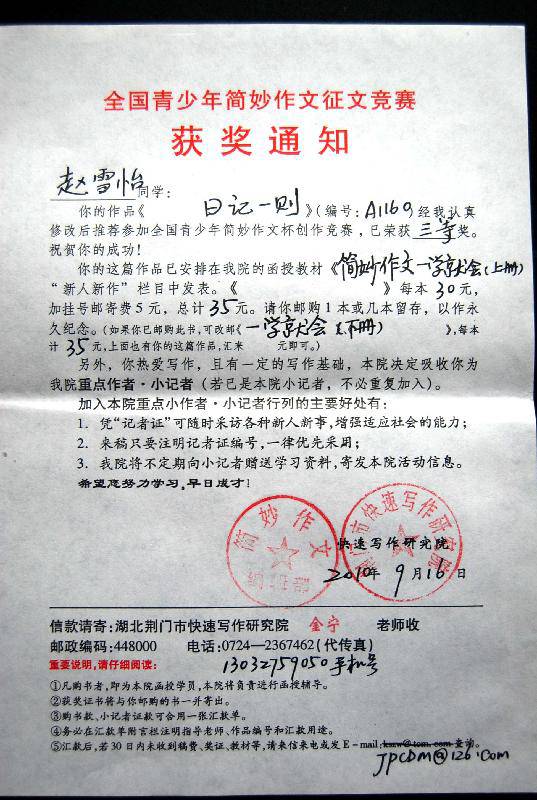 全国青少年简妙作文征文竞赛
获奖通知
赵雪怡同学：
你的作品《 日记一则 》（编号：A1160，经我认真
修改后推荐参加全国青少年简妙作文杯创作竞赛，已荣获三等奖。
祝贺你的成功！
你的这篇作品已安排在我院的函授教材《简妙作文一学就会(上册)
“新人新作”栏目中发表。《 》每本30元，
加挂号邮寄费5元，总计35元。请你邮购1本或几本留存，以作永
久纪念。（如果你已邮购此书，可改邮《一学就会 下册) 》，每本
计35元，上面也有你的这篇作品，汇来 元即可。）
另外，你热爱写作，且有一定的写作基础，本院决定吸收你为
我院重点作者·小记者（若已是本院小记者，不必重复加入）。
加入本院重点小作者·小记者行列的主要好处有：
1. 凭“记者证”可随时采访各种新人新事，增强适应社会的能力；
2. 来稿只要注明记者证编号，一律优先采用；
3. 我院将不定期向小记者赠送学习资料，寄发本院活动信息。
希望您努力学习，早日成才！
简妙作文
编辑部
荆门市快速写作研究院
快速写作研究院
2010年9月16日
信款请寄：湖北荆门市快速写作研究院 金宁 老师收
邮政编码：448000 电话：0724—2367462（代传真）
重要说明，请仔细阅读： 13032759050手机号
①凡购书者，即为本院函授学员，本院将负责进行函授辅导。
②获奖证书将与你邮购的书一并寄出。
③购书款、小记者证款可合用一张汇款单。
④务必在汇款单附言栏注明指导老师、作品编号和汇款用途。
⑤汇款后，若30日内未收到稿费、奖证、教材等，请来信来电或发E-mail:ksxw@tom.com查询。
JPCDM@126.com